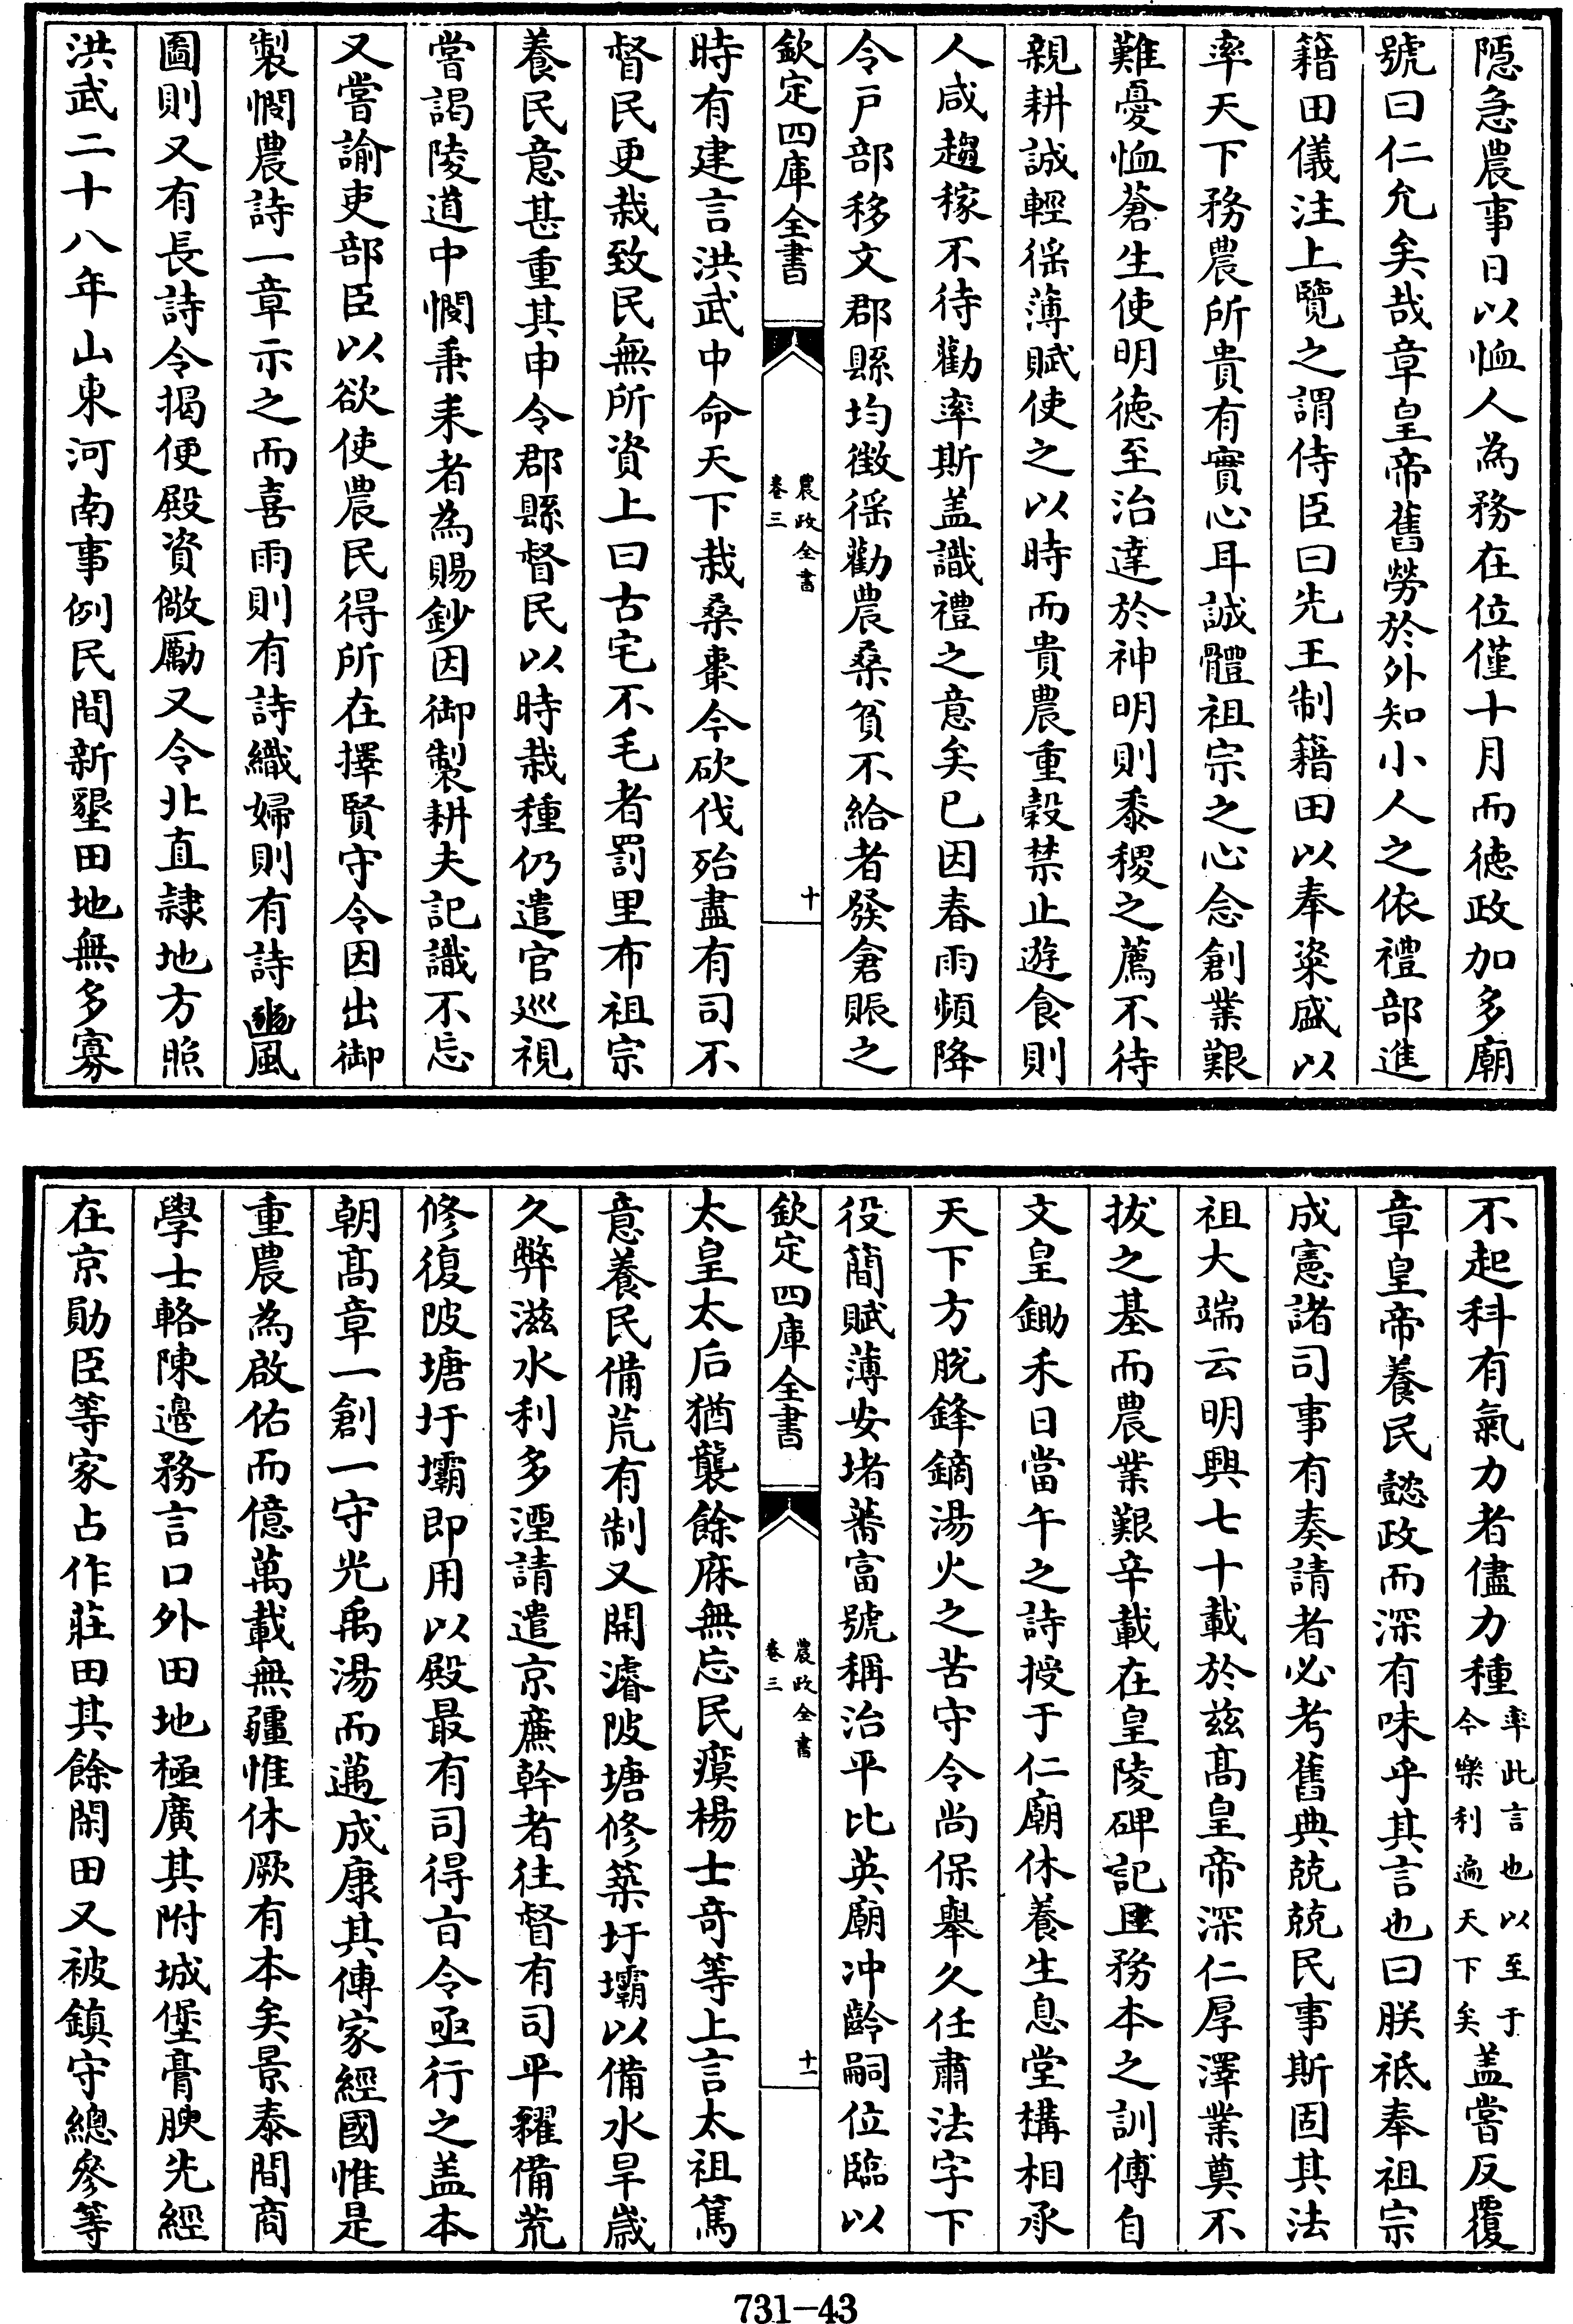 隠急農事日以恤人為務在位僅十月而徳政加多廟
號曰仁允矣哉章皇帝舊勞於外知小人之依禮部進
籍田儀注上覽之謂侍臣曰先王制籍田以奉粢盛以
率天下務農所貴有實心耳誠體祖宗之心念創業艱
難憂恤蒼生使明徳至治達於神明則黍稷之薦不待
親耕誠輕徭薄賦使之以時而貴農重穀禁止遊食則
人咸趨稼不待勸率斯盖識禮之意矣已因春雨頻降
令户部移文郡縣均徴徭勸農桑貧不給者發倉賑之
欽定四庫全書
農政全書
卷三
十
時有建言洪武中命天下栽桑棗今砍伐殆盡有司不
督民更栽致民無所資上曰古宅不毛者罰里布祖宗
養民意甚重其申令郡縣督民以時栽種仍遣官巡視
嘗謁陵道中憫秉耒者為賜鈔因御製耕夫記識不忘
又嘗諭吏部臣以欲使農民得所在擇賢守令因出御
製憫農詩一章示之而喜雨則有詩織婦則有詩豳風
圖則又有長詩令揭便殿資儆勵又令北直隸地方照
洪武二十八年山東河南事例民間新墾田地無多寡
不起科有氣力者儘力種率此言也以至于今樂利遍天下矣盖嘗反覆
章皇帝養民懿政而深有味乎其言也曰朕祗奉祖宗
成憲諸司事有奏請者必考舊典兢兢民事斯固其法
祖大端云明興七十載於兹髙皇帝深仁厚澤業奠不
拔之基而農業艱辛載在皇陵碑記𨑰務本之訓傳自
文皇鋤禾日當午之詩授于仁廟休養生息堂構相承
天下方脱鋒鏑湯火之苦守令尚保舉久任肅法字下
役簡賦薄安堵蕃富號稱治平比英廟冲齡嗣位臨以
欽定四庫全書
農政全書
卷三
十一
太皇太后猶襲餘庥無忘民瘼楊士竒等上言太祖篤
意養民備荒有制又開濬陂塘修築圩壩以備水旱嵗
久弊滋水利多湮請遣京亷幹者往督有司平糴備荒
修復陂塘圩壩即用以殿最有司得㫖令亟行之盖本
朝髙章一創一守光禹湯而邁成康其傳家經國惟是
重農為啟佑而億萬載無疆惟休厥有本矣景泰間商
學士輅陳邉務言口外田地極廣其附城堡膏腴先經
在京勛臣等家占作莊田其餘閑田又被鎮守總參等
731-43